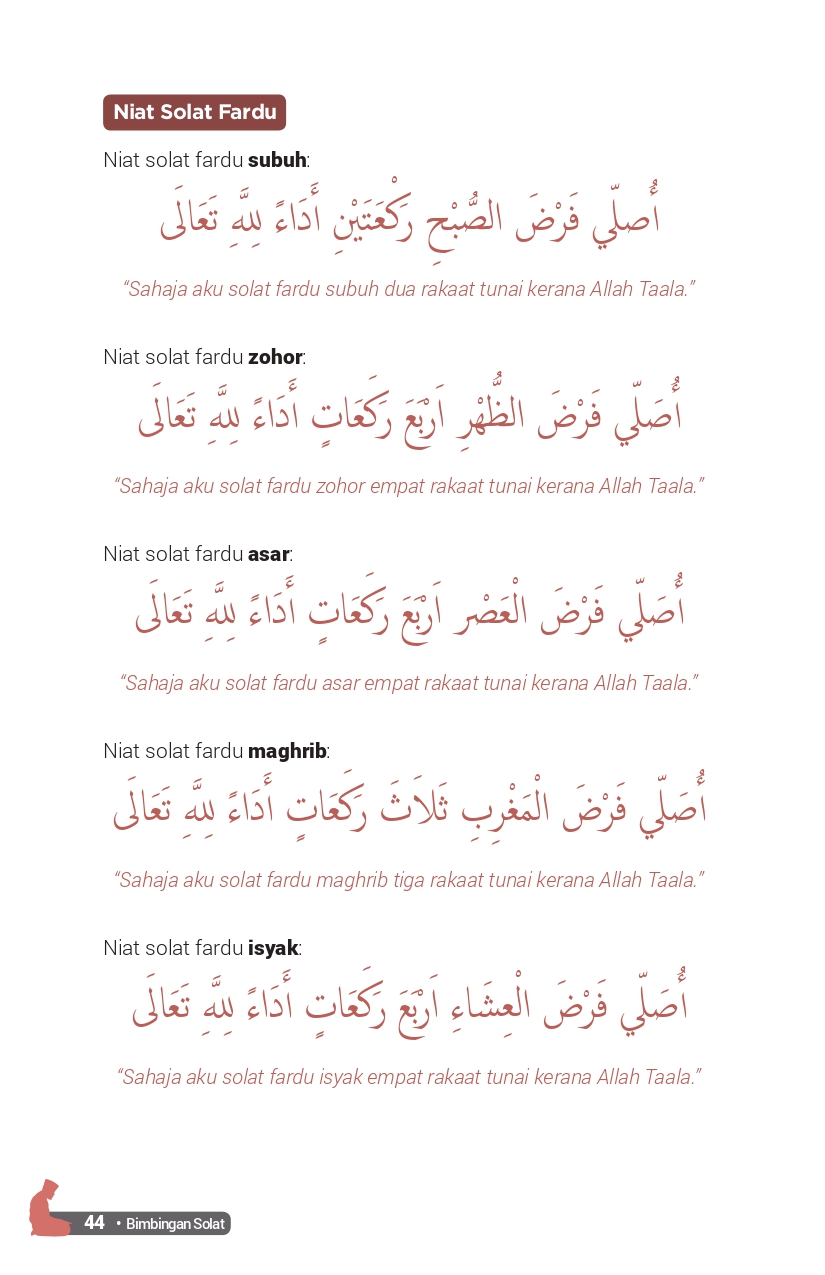 Niat Solat Fardu
Niat solat fardu subuh:
أُصلّي فَرْضَ الصُّبْحِ رَكْعَتَيْنِ أَدَاءً لِلَّهِ تَعَالَى
“Sahaja aku solat fardu subuh dua rakaat tunai kerana Allah Taala.”
Niat solat fardu zohor:
أُصَلّي فَرْضَ الظُّهْرِ اَرْبَعَ رَكَعَاتٍ أَدَاءً لِلَّهِ تَعَالَى
“Sahaja aku solat fardu zohor empat rakaat tunai kerana Allah Taala.”
Niat solat fardu asar:
أُصَلّي فَرْضَ الْعَصْر اَرْبَعَ رَكَعَاتٍ أَدَاءً لِلَّهِ تَعَالَى
“Sahaja aku solat fardu asar empat rakaat tunai kerana Allah Taala.”
Niat solat fardu maghrib:
أُصَلّي فَرْضَ الْمَغْرِبِ ثَلاَثَ رَكَعَاتٍ أَدَاءً لِلَّهِ تَعَالَى
“Sahaja aku solat fardu maghrib tiga rakaat tunai kerana Allah Taala.”
Niat solat fardu isyak:
أُصَلّي فَرْضَ الْعِشَاءِ اَرْبَعَ رَكَعَاتٍ أَدَاءً لِلَّهِ تَعَالَى
“Sahaja aku solat fardu isyak empat rakaat tunai kerana Allah Taala.”
44 • Bimbingan Solat